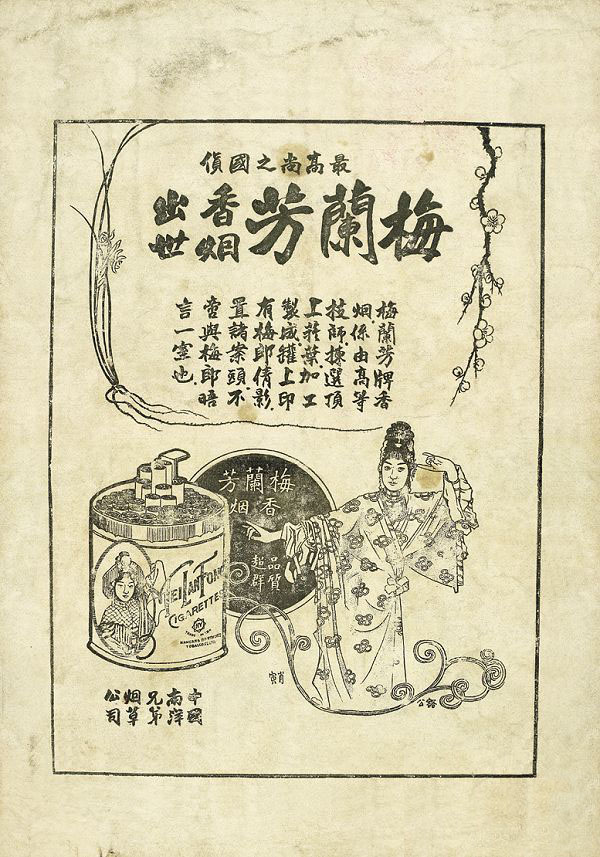 最高尚之國貨
梅蘭芳香烟出世
梅蘭芳牌香
烟係由高等
技師揀選頂
上菸葉加工
製成罐上印
有梅郎倩影
置諸案頭不
啻與梅郎晤
言一室也
梅蘭芳
香烟
品質
超群
MEI LAN FONG
CIGARETTES
NANYANG BROTHERS
TOBACCO CO. LTD.
中國
南洋
兄弟
烟草
公司